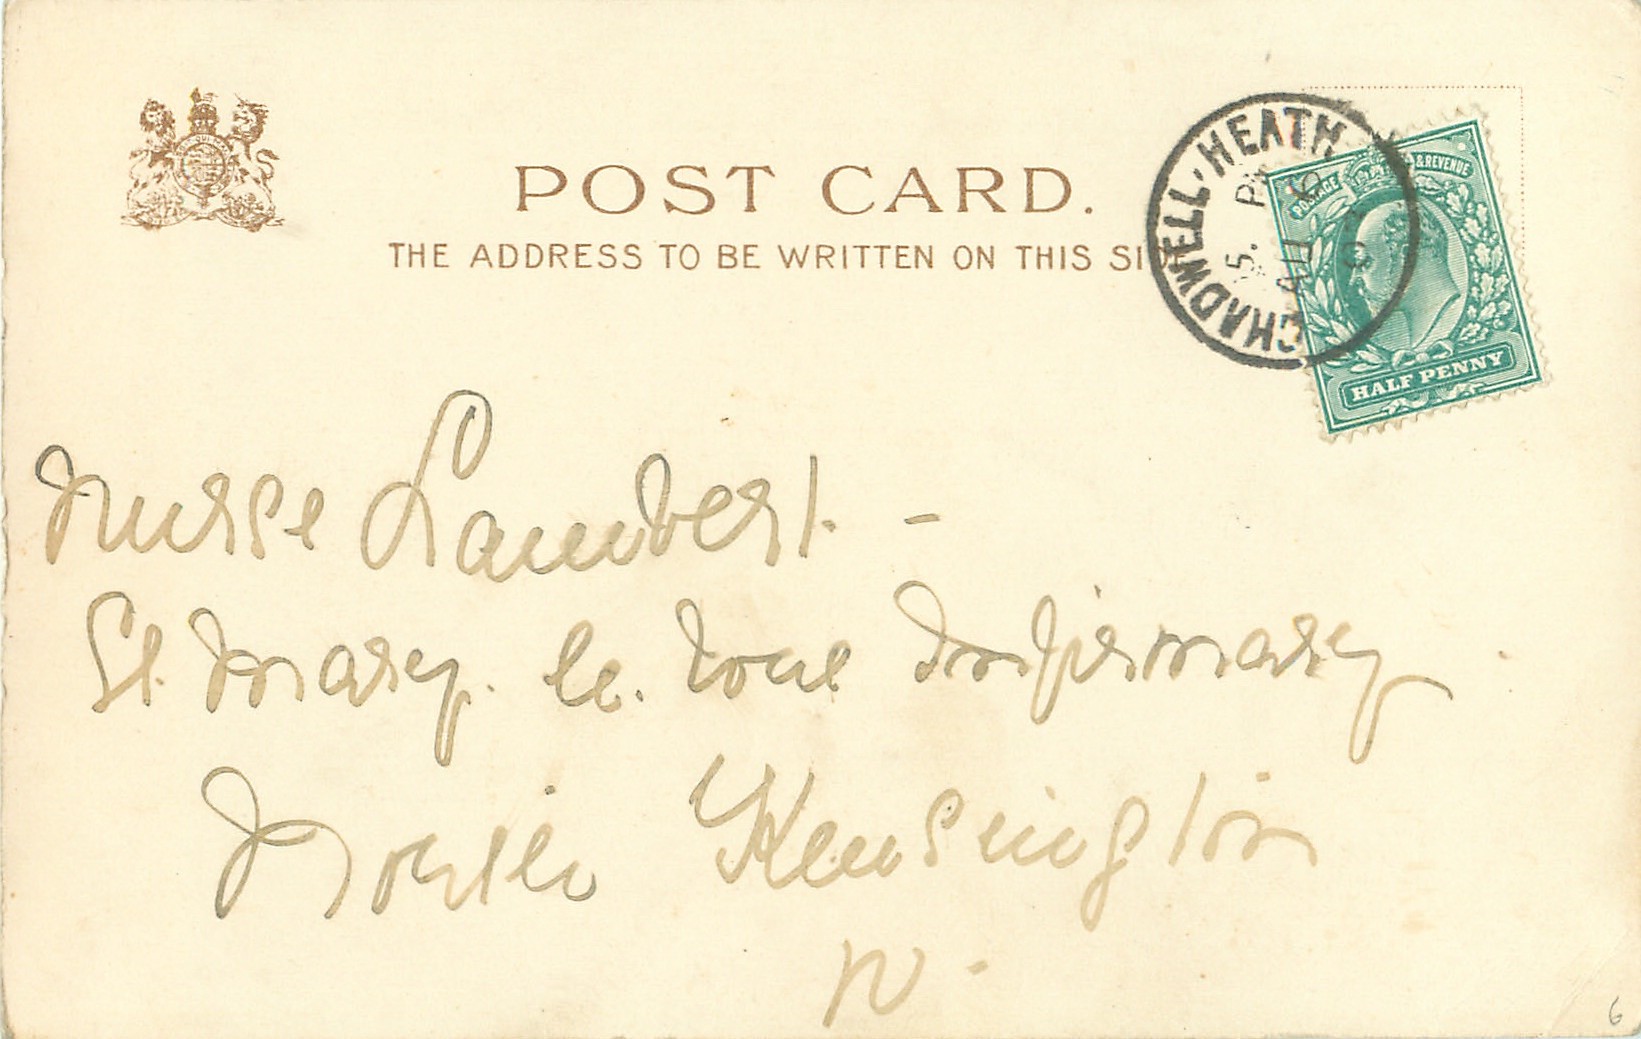 POST CARD.
THE ADDRESS TO BE WRITTEN ON THIS SI
CHADWELL·HEATH
5. P
AU 6
0
POSTAGE & REVENUE
HALF PENNY
Nurse Lambert. -
St Mary. Le. Infirmary
North Kensington
W.
6